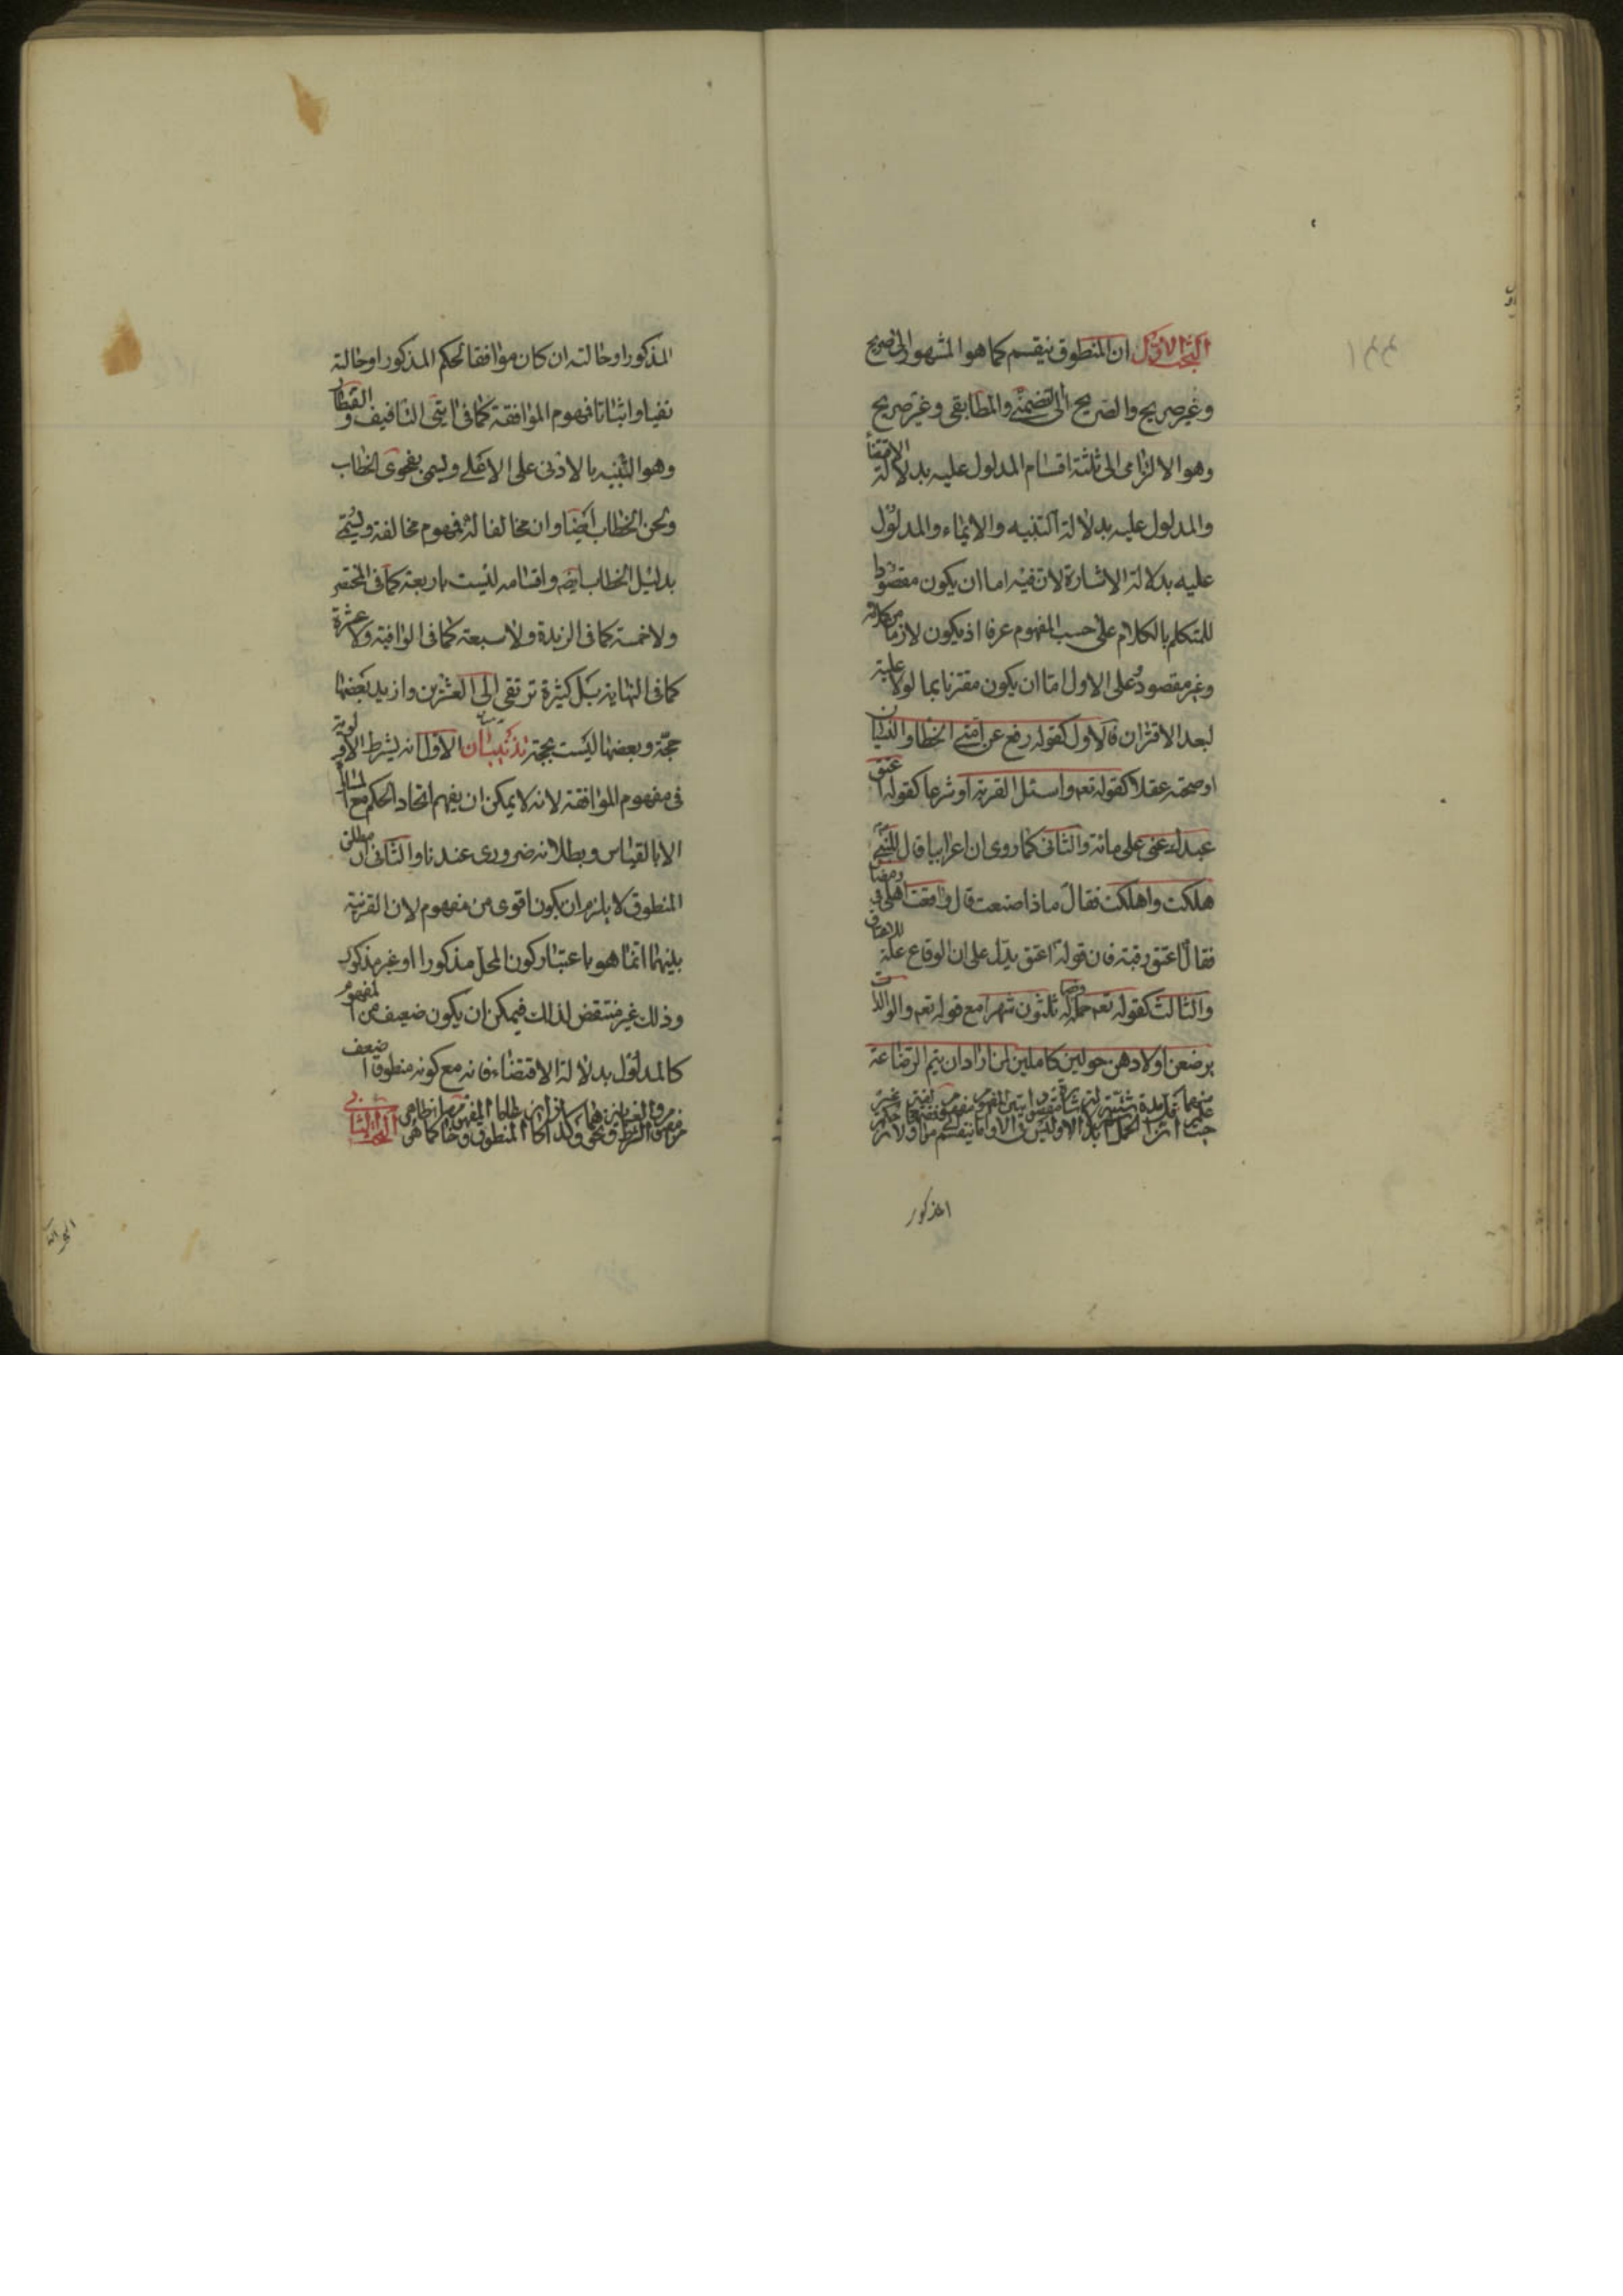 البحث الاول ان المنطوق ينقسم كما هو المشهور الى صريح
وغير صريح والصريح الى التضمني والمطابقى وغير صريح
وهو الالتزامى الى ثلثة اقسام المدلول عليه بدلالة الاقتضا
والمدلول عليه بدلالة التنبيه والايماء والمدلول
عليه بدلالة الاشارة لانه فيه اما ان يكون مقصودا
للمتكلم بالكلام على حسب المفهوم عرفا اذ يكون لازما من كلامه
وغير مقصود على الاول اما ان يكون مقترنا بما لولا علية
لبعد الاقتران فالاول كقوله رفع عن امتى الخطا والنسيان
او صحته عقلا كقوله تعه واسئل القرية او شرعا كقوله اعتق
عبدك عنى على مائة والثانى كما روى ان اعرابيا قال للنبى
هلكت واهلكت فقال ماذا صنعت قال واقعت اهلى فى رمضان
فقال اعتق رقبة فان قوله اعتق يدل على ان الوقاع علة للاعتاق
والثالث كقوله تعه حمله وفصاله ثلثون شهرا مع قوله تعه والوالدات
يرضعن اولادهن حولين كاملين لمن اراد ان يتم الرضاعة
المذكور
المذكور او حالته ان كان موافقا لحكم المذكور او حالة
نفيا واثباتا فمفهوم الموافقة كما فى ايتى التافيف والقنطار
وهو التنبيه بالادنى على الاعلى ويسمى بفحوى الخطاب
ولحن الخطاب ايضا وان مخالفا له فمفهوم مخالفة ويسمى
بدليل الخطاب ايضه واقسامه ليست باربعة كما فى المختصر
ولا خمسة كما فى الزبدة ولا سبعة كما فى الوافية ولا عشرة
كما فى النهاية بل كثيرة ترتقى الى العشرين وازيد بعضها
حجة وبعضها ليست بحجة تذنيبان الاول انه يشرط الاولوية
فى مفهوم الموافقة لانه لا يمكن ان يفهم اتحاد الحكم مع
الا بالقياس وبطلانه ضرورى عندنا والثانى ان مطلق
المنطوق لا يلزم ان يكون اقوى من مفهوم لان القرينة
بينهما انما هو باعتبار كون المحل مذكورا او غير مذكور
وذلك غير منتقض لذلك فيمكن ان يكون ضعيف من المفهوم
كالمدلول بدلالة الاقتضاء فانه مع كونه منطوقا اضعف
البحث الثانى